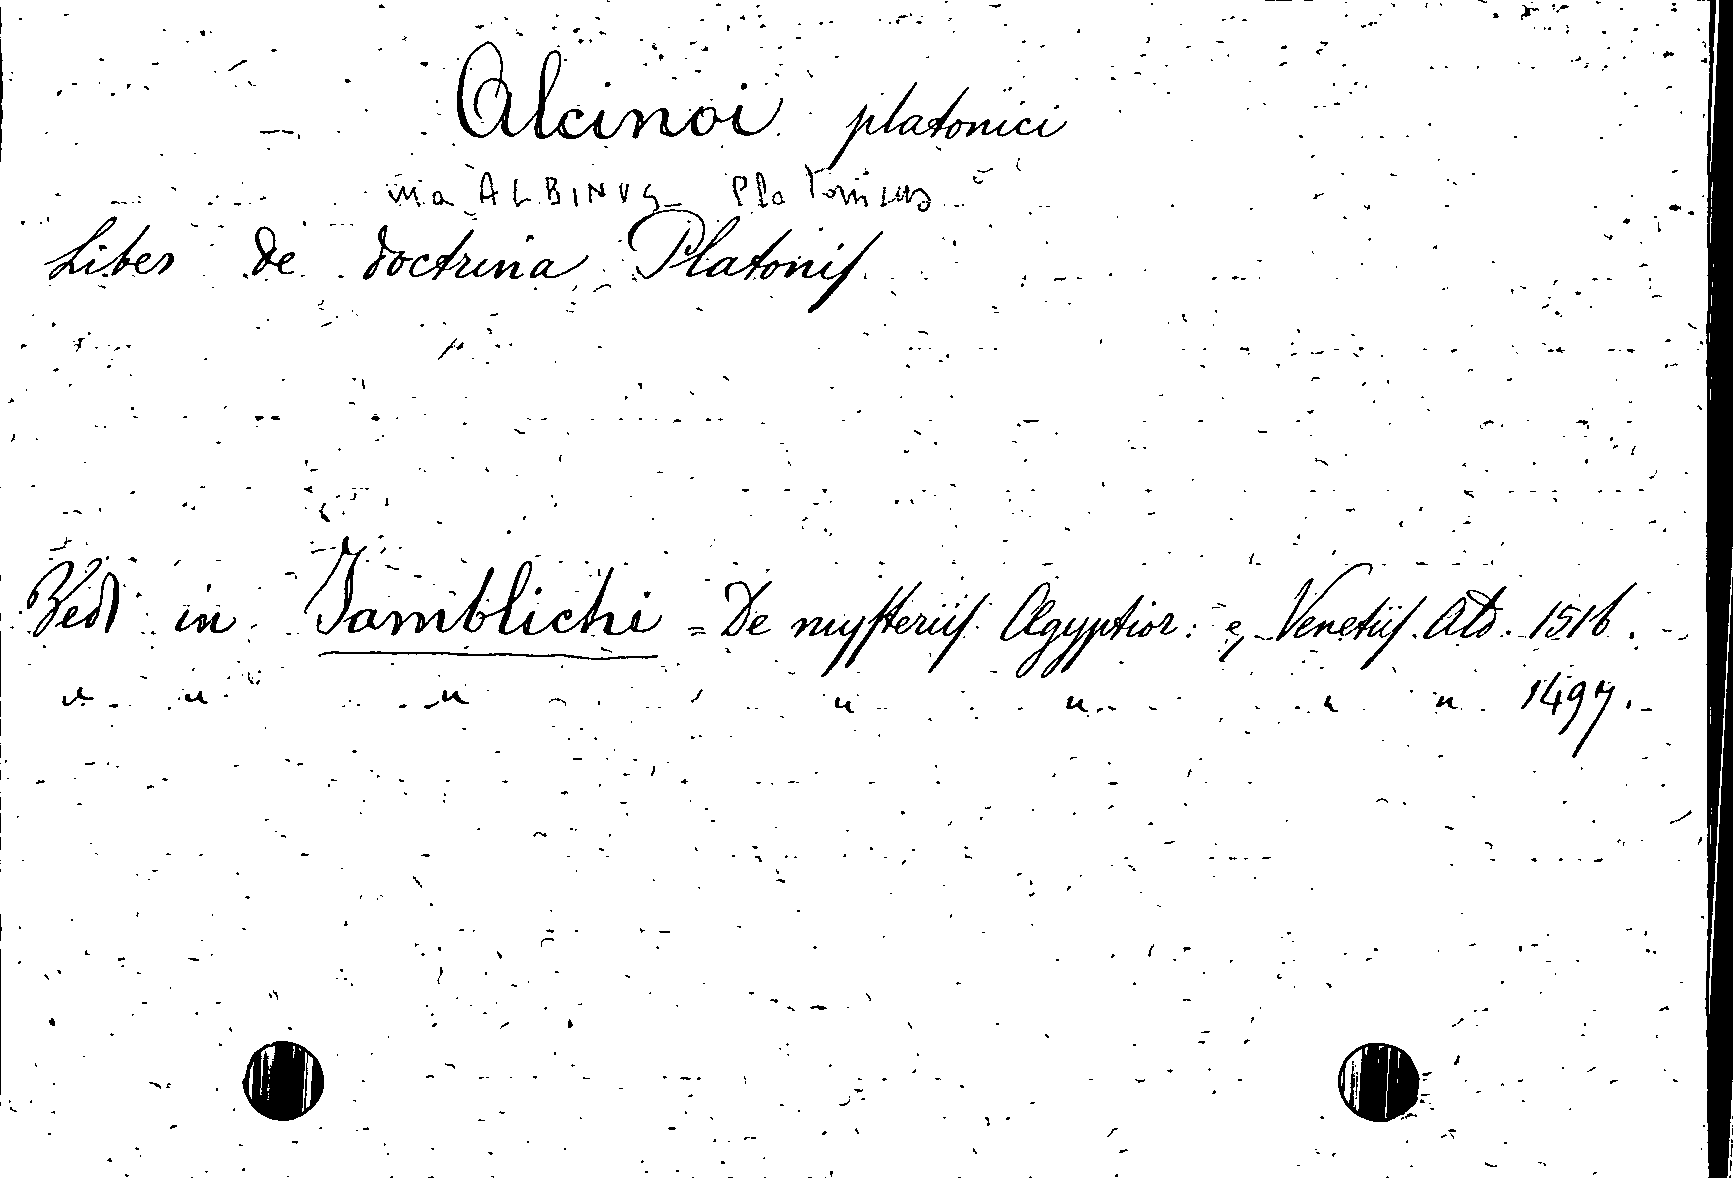 Alcinoi platonici
ma ALBINUS Platonicus
Liber de doctrina Platonis.
Vedi in Iamblichi = De mysteriis Ægyptior: e, Venetiis. Ald. 1516.
" " " " " " " 1497.